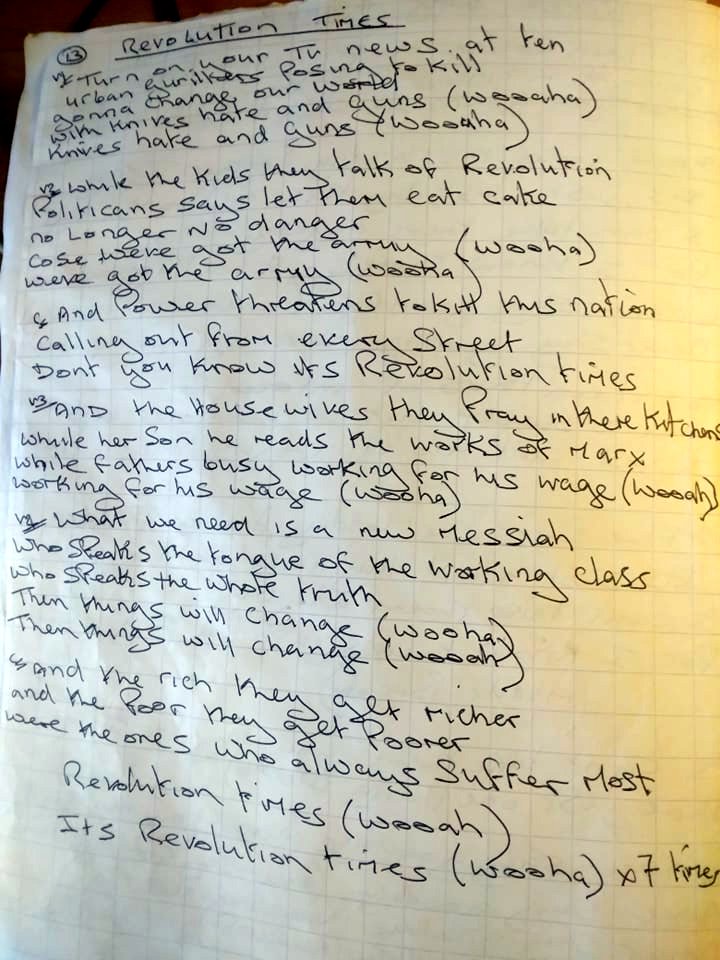 13 Revolution Times
v1 Turn on your TV news at ten
urban gurilkers Posing to kill
gonna change our world
with knives hate and guns (wooaha)
knives hate and guns (woooha)
v2 while the kids they talk of Revolution
Politicans says let them eat cake
no Longer No danger
cose weve got the army (wooha)
weve got the army (wooha)
c And Power threatens to kill this nation
Calling out from every Street
Dont you know its Revolution times
v3 AND the Housewives they Pray in there kitchens
while her Son he reads the works of Marx
while fathers busy working for his wage (wooah)
working for his wage (wooha)
What we need is a new Messiah
who Speaks the tongue of the working class
who Speaks the whole truth
Then things will change (wooha)
Then things will change (wooah)
c and the rich they get richer
and the Poor they get Poorer
were the ones who always Suffer Most
Revolution times (wooah)
Its Revolution times (wooha) x7 times